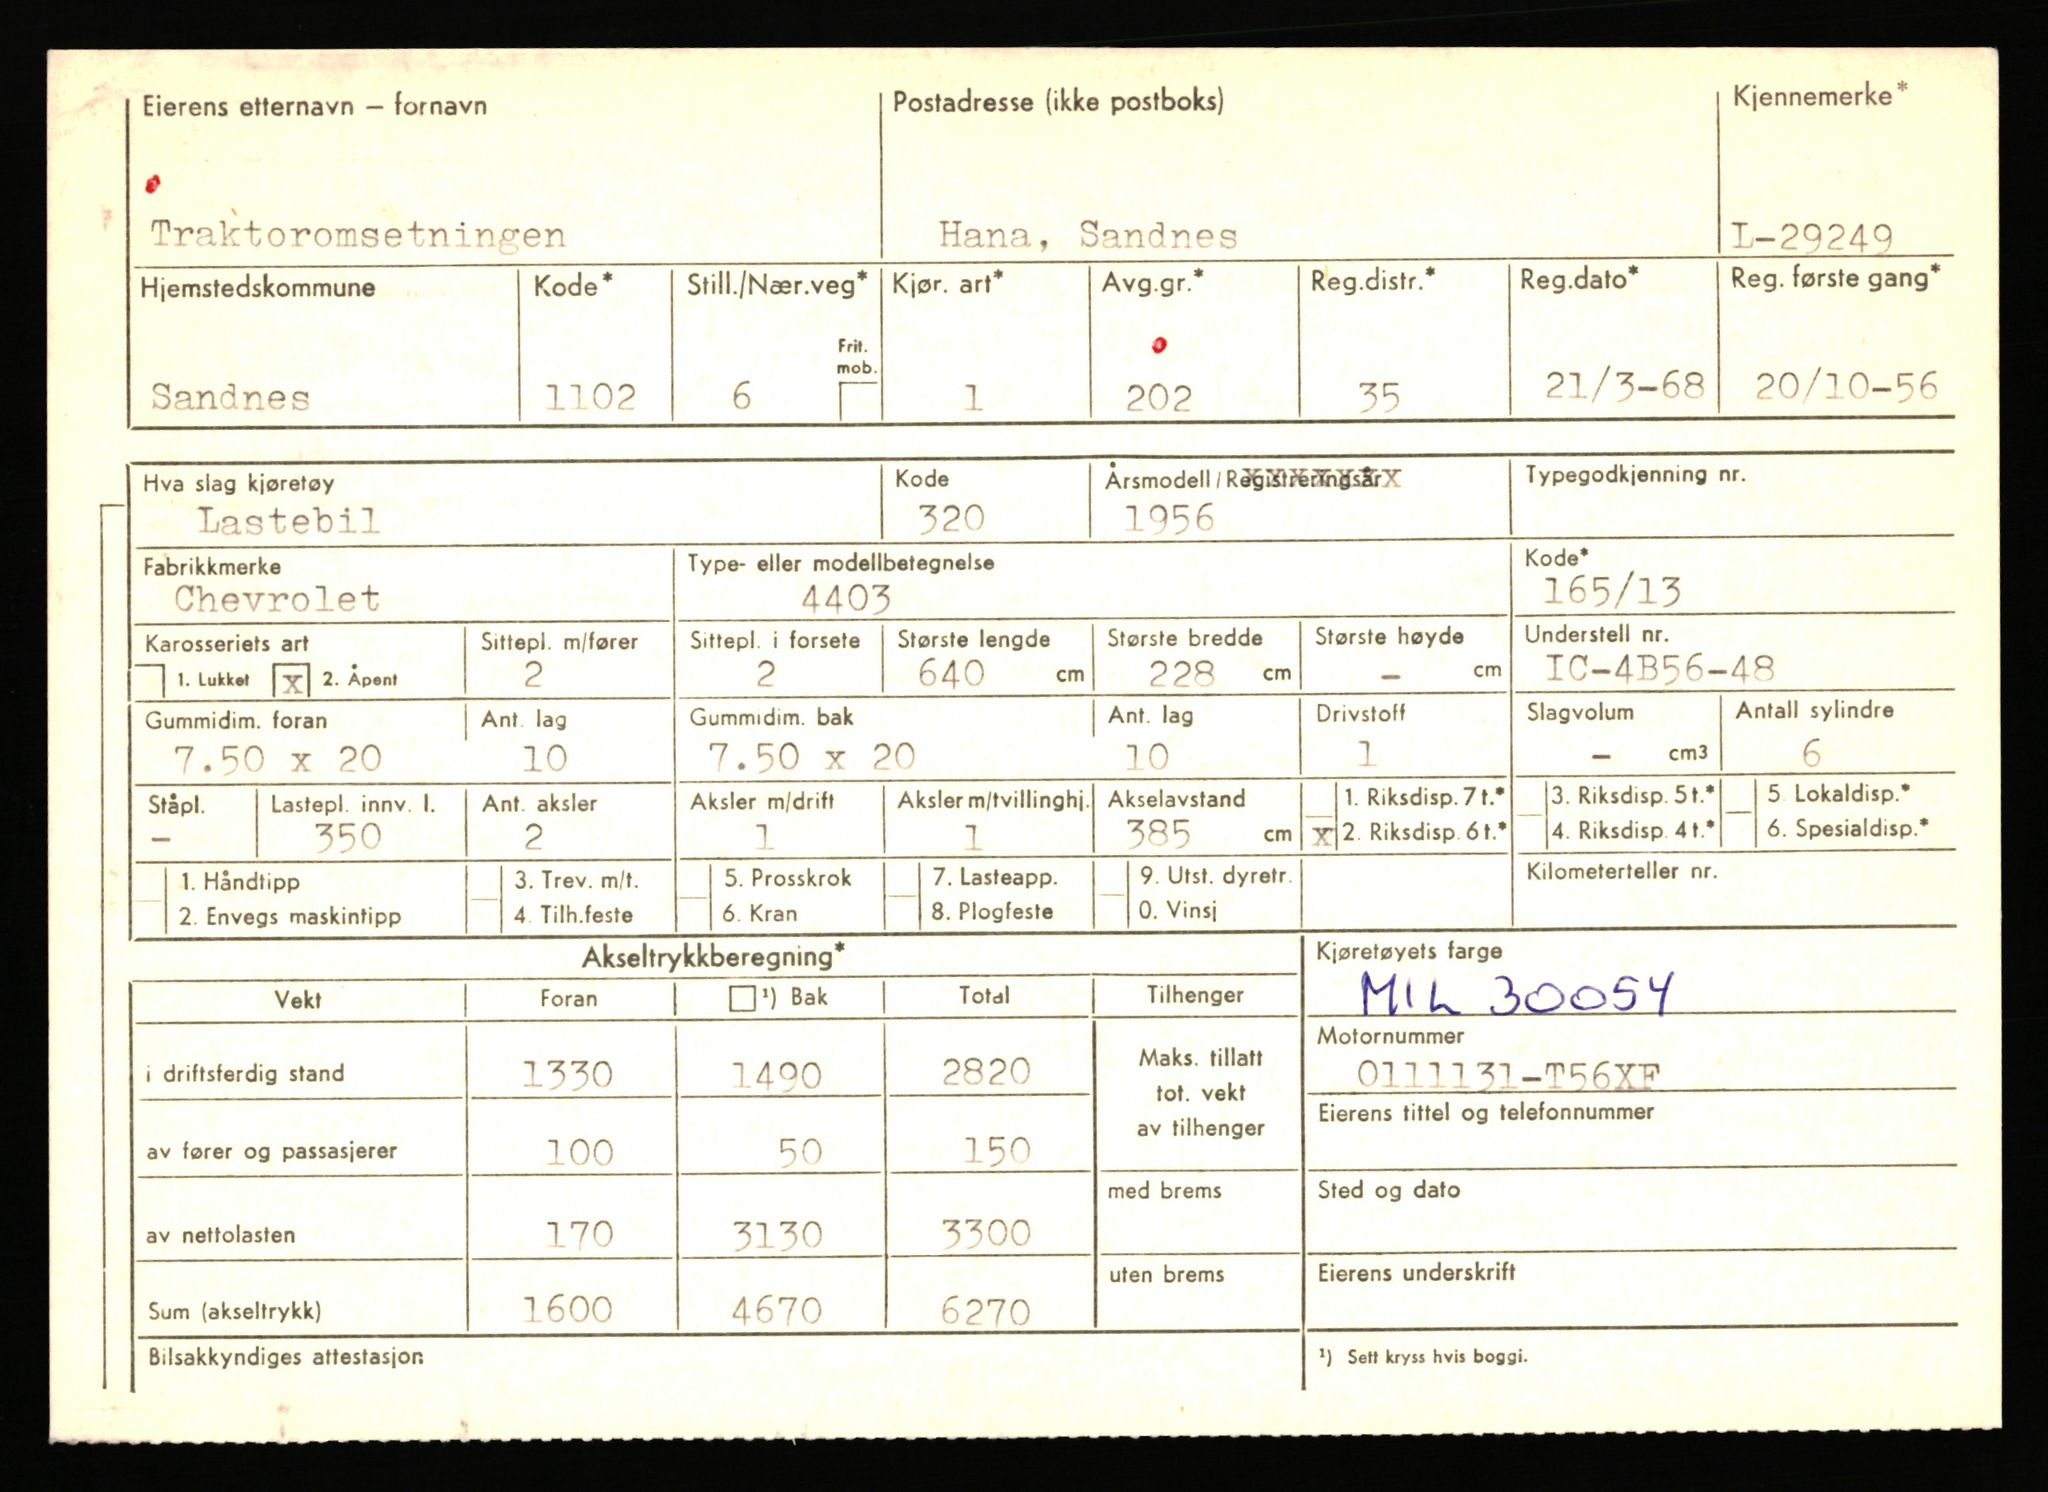 Eierens etternavn – fornavn Postadresse (ikke postboks) Kjennemerke*
Traktoromsetningen Hana, Sandnes L-29249
Hjemstedskommune Kode* Still./Nær.veg* Kjør. art* Avg.gr.* Reg.distr.* Reg.dato* Reg. første gang*
Frit. mob.
Sandnes 1102 6 1 202 35 21/3-68 20/10-56
Hva slag kjøretøy Kode Årsmodell / Registreringsår Typegodkjenning nr.
Lastebil 320 1956
Fabrikkmerke Type- eller modellbetegnelse Kode*
Chevrolet 4403 165/13
Karosseriets art Sittepl. m/fører Sittepl. i forsete Største lengde Største bredde Største høyde Understell nr.
1. Lukket X 2. Åpent 2 2 640 cm 228 cm – cm IC-4B56-48
Gummidim. foran Ant. lag Gummidim. bak Ant. lag Drivstoff Slagvolum Antall sylindre
7.50 x 20 10 7.50 x 20 10 1 – cm3 6
Ståpl. Lastepl. innv. l. Ant. aksler Aksler m/drift Aksler m/tvillinghj. Akselavstand 1. Riksdisp. 7 t.* 3. Riksdisp. 5 t.* 5. Lokaldisp.*
– 350 2 1 1 385 cm X 2. Riksdisp. 6 t.* 4. Riksdisp. 4 t.* 6. Spesialdisp.*
1. Håndtipp 3. Trev. m/t. 5. Prosskrok 7. Lasteapp. 9. Utst. dyretr. Kilometerteller nr.
2. Envegs maskintipp 4. Tilh.feste 6. Kran 8. Plogfeste 0. Vinsj
Akseltrykkberegning* Kjøretøyets farge
Vekt Foran ¹) Bak Total Tilhenger MIL 30054
Motornummer
i driftsferdig stand 1330 1490 2820 Maks. tillatt tot. vekt av tilhenger 0111131-T56XF
Eierens tittel og telefonnummer
av fører og passasjerer 100 50 150
med brems Sted og dato
av nettolasten 170 3130 3300
uten brems Eierens underskrift
Sum (akseltrykk) 1600 4670 6270
Bilsakkyndiges attestasjon: ¹) Sett kryss hvis boggi.